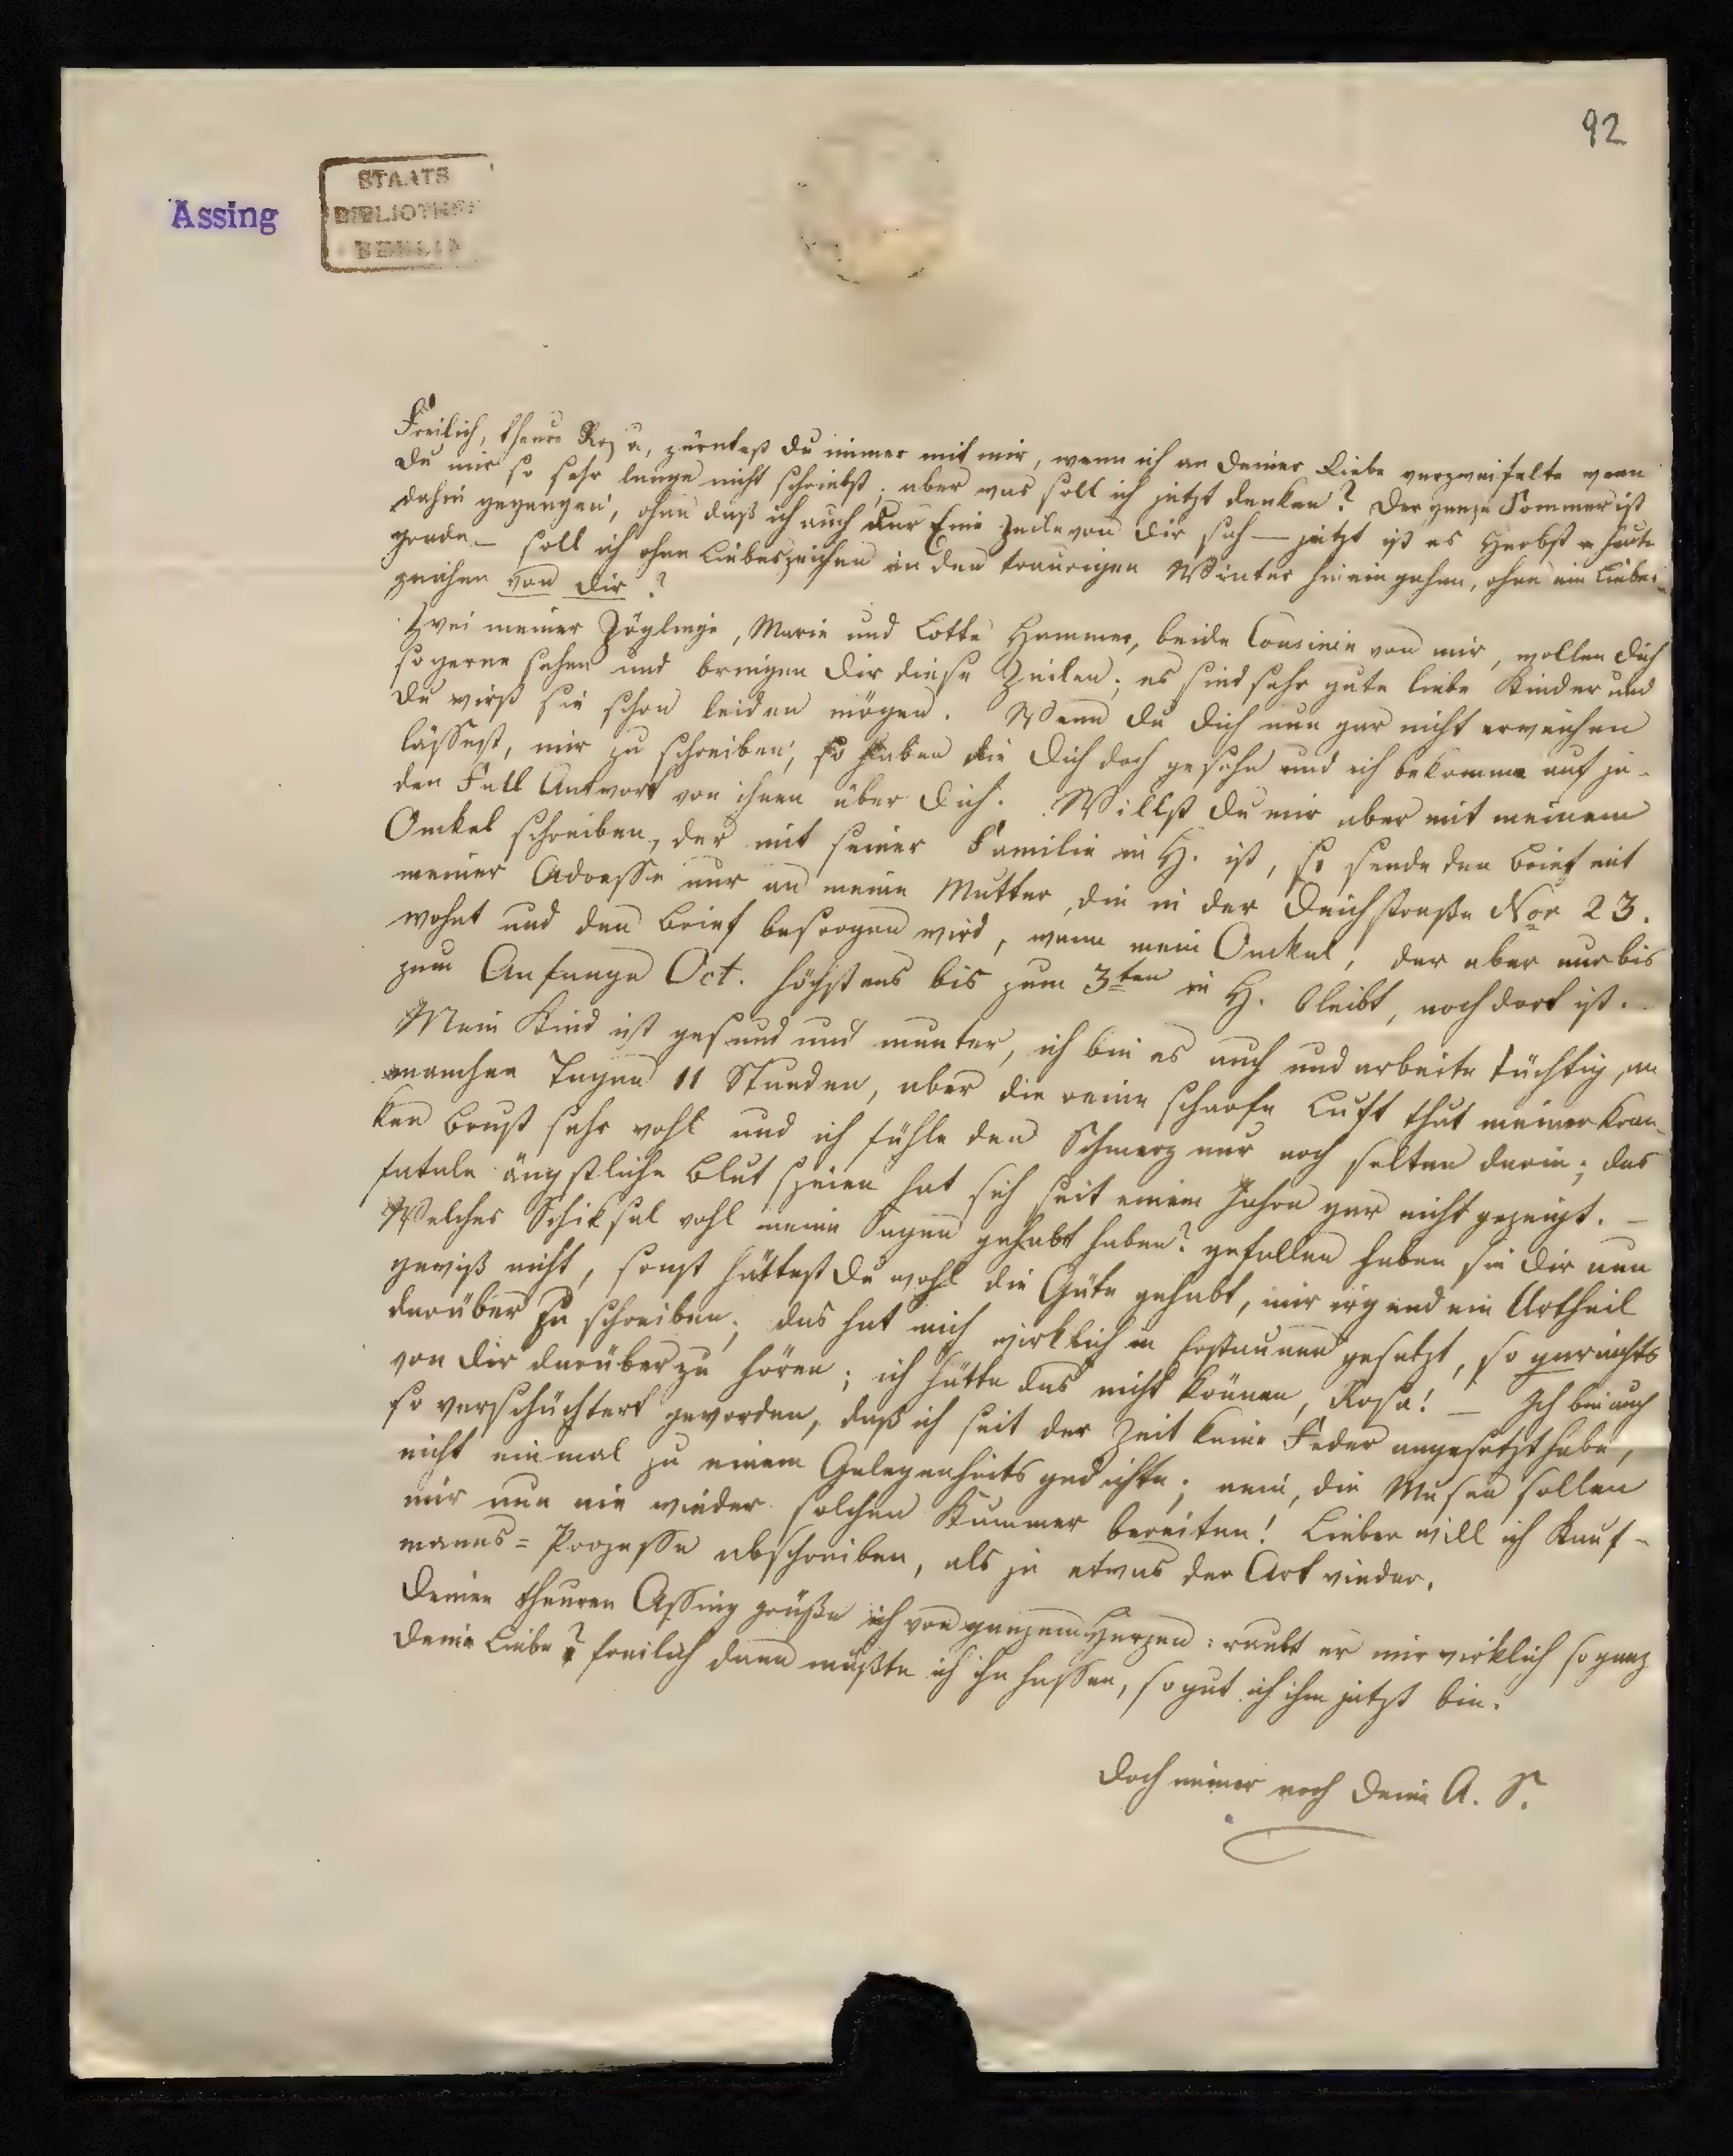 92
Assing
STAATS
BIBLIOTHEK
BERLIN
Freilich, theure Rosa, zürntest Du immer mit mir, wenn ich an Deiner Liebe verzweifelte wenn
Du mir so sehr lange nicht schriebst; aber was soll ich jetzt denken? Der ganze Sommer ist
dahin gegangen, ohne daß ich auch nur Eine Zeile von Dir sah — jetzt ist es Herbst heute
grade — soll ich ohne Liebeszeichen in den traurigen Winter hineingehen, ohne ein Liebes-
zeichen von Dir?
Zwei meiner Zöglinge, Marie und Lotte Hammer, beide Cousinen von mir, wollen Dich
so gerne sehen und bringen Dir diese Zeilen; es sind sehr gute liebe Kinder und
Du wirst sie schon leiden mögen. Wenn Du Dich nun gar nicht erweichen
lässest, mir zu schreiben, so haben die Dich doch gesehn und ich bekomme auf je-
den Fall Antwort von ihnen über Dich. Willst Du mir aber mit meinem
Onkel schreiben, der mit seiner Familie in H. ist, so sende den Brief mit
meiner Adresse nur an meine Mutter, die in der Deichstraße Nor 23.
wohnt und den Brief besorgen wird, wenn mein Onckel, der aber nur bis
zum Anfange Oct. höchstens bis zum 3ten in H. bleibt, noch dort ist.
Mein Kind ist gesund und munter, ich bin es auch und arbeite tüchtig, an
manchen Tagen 11 Stunden, aber die reine scharfe Luft thut meiner kran-
ken Brust sehr wohl und ich fühle den Schmerz nur noch selten darin; das
fatale ängstliche Blutspeien hat sich seit einem Jahre gar nicht gezeigt. —
Welches Schiksal wohl meine Sagen gehabt haben? gefallen haben sie Dir nun
gewiß nicht, sonst hättest Du wohl die Güte gehabt, mir irgend ein Urtheil
darüber zu schreiben; das hat mich wirklich in Erstaunen gesetzt, so gar nichts
von Dir darüber zu hören; ich hätte das nicht können, Rosa! — Ich bin auch
so verschüchtert geworden, daß ich seit der Zeit keine Feder angesetzt habe,
nicht einmal zu einem Gelegenheitsgedichte; nein, die Musen sollen
mir nun nie wieder solchen Kummer bereiten! Lieber will ich Kauf-
manns=Prozesse abschreiben, als je etwas der Art wieder.
Deinen theuren Assing grüße ich von ganzem Herzen: raubt er mir wirklich so ganz
Deine Liebe? freilich dann müßte ich ihn hassen, so gut ich ihm jetzt bin.
Doch immer noch Deine A. S.